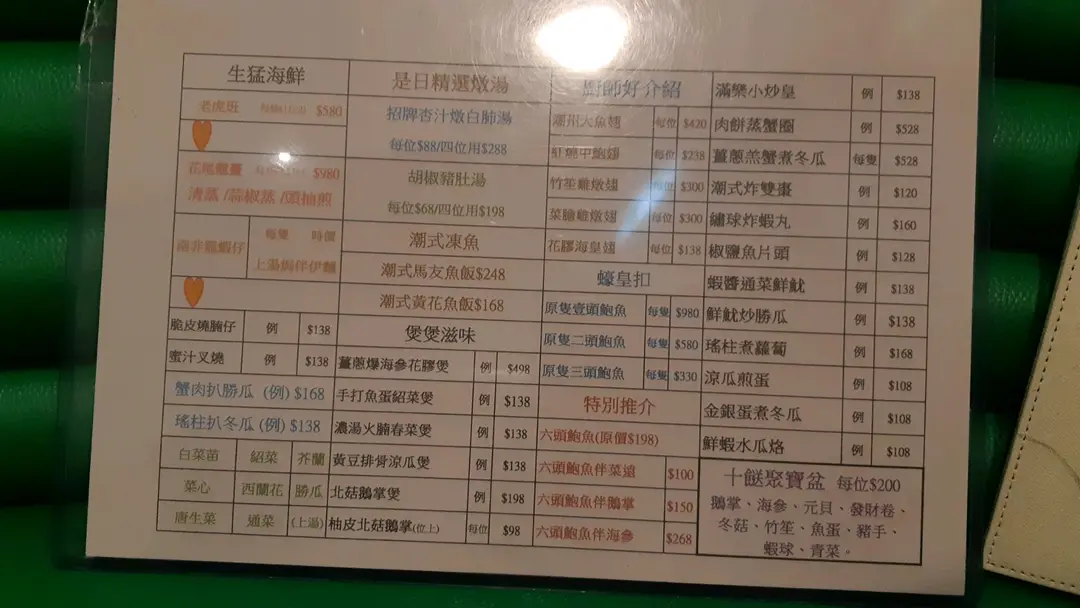 生猛海鮮
老虎斑 $580
花尾龍躉 $980
清蒸/蒜椒蒸/頭抽煎
南非龍蝦仔 每隻 時價
上湯焗伴伊麵
脆皮燒腩仔 例 $138
蜜汁叉燒 例 $138
蟹肉扒勝瓜 (例) $168
瑤柱扒冬瓜 (例) $138
白菜苗 紹菜 芥蘭
菜心 西蘭花 勝瓜
唐生菜 通菜 (上湯)
是日精選燉湯
招牌杏汁燉白肺湯
每位$88/四位用$288
胡椒豬肚湯
每位$68/四位用$198
潮式凍魚
潮式馬友魚飯$248
潮式黃花魚飯$168
煲煲滋味
薑蔥爆海參花膠煲 例 $498
手打魚蛋紹菜煲 例 $138
濃湯火腩春菜煲 例 $138
黃豆排骨涼瓜煲 例 $138
北菇鵝掌煲 例 $198
柚皮北菇鵝掌(位上) 每位 $98
廚師好介紹
潮州大魚翅 每位 $420
紅燒中鮑翅 每位 $238
竹笙雞燉翅 每位 $300
菜膽雞燉翅 每位 $300
花膠海皇翅 每位 $138
蠔皇扣
原隻壹頭鮑魚 每隻 $980
原隻二頭鮑魚 每隻 $580
原隻三頭鮑魚 每隻 $330
特別推介
六頭鮑魚(原價$198)
六頭鮑魚伴菜遠 $100
六頭鮑魚伴鵝掌 $150
六頭鮑魚伴海參 $268
滿樂小炒皇 例 $138
肉餅蒸蟹圈 例 $528
薑蔥羔蟹煮冬瓜 每隻 $528
潮式炸雙棗 例 $120
繡球炸蝦丸 例 $160
椒鹽魚片頭 例 $128
蝦醬通菜鮮魷 例 $138
鮮魷炒勝瓜 例 $138
瑤柱煮蘿蔔 例 $168
涼瓜煎蛋 例 $108
金銀蛋煮冬瓜 例 $108
鮮蝦水瓜烙 例 $108
十餸聚寶盆 每位$200
鵝掌、海參、元貝、發財卷、
冬菇、竹笙、魚蛋、豬手、
蝦球、青菜。